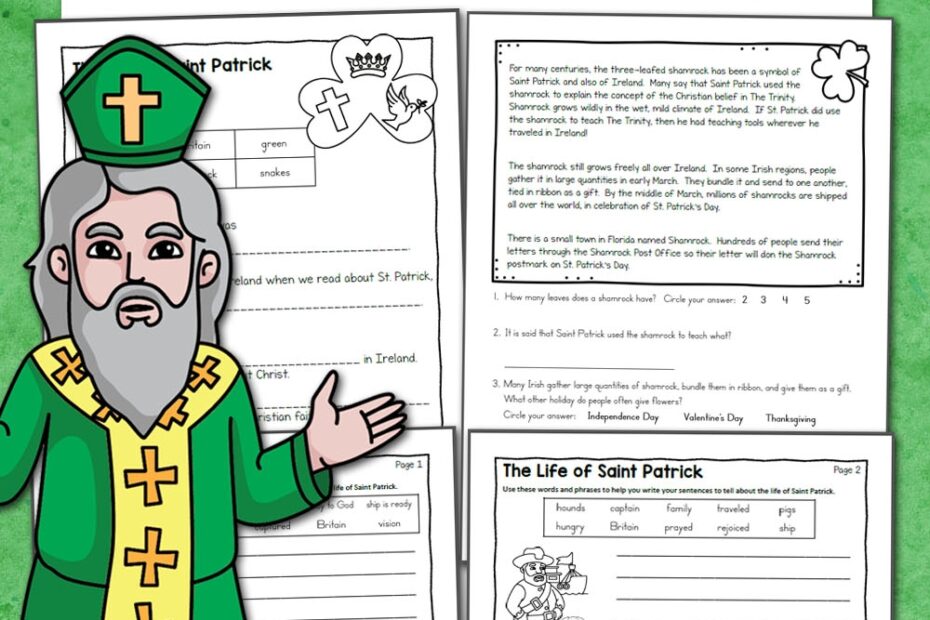 Saint Patrick
Britain green
snakes
was
Ireland when we read about St. Patrick,
in Ireland.
Christ.
Christian
For many centuries, the three-leafed shamrock has been a symbol of
Saint Patrick and also of Ireland. Many say that Saint Patrick used the
shamrock to explain the concept of the Christian belief in The Trinity.
Shamrock grows wildly in the wet, mild climate of Ireland. If St. Patrick did use
the shamrock to teach The Trinity, then he had teaching tools wherever he
traveled in Ireland!
The shamrock still grows freely all over Ireland. In some Irish regions, people
gather it in large quantities in early March. They bundle it and send to one another,
tied in ribbon as a gift. By the middle of March, millions of shamrocks are shipped
all over the world, in celebration of St. Patrick's Day.
There is a small town in Florida named Shamrock. Hundreds of people send their
letters through the Shamrock Post Office so their letter will don the Shamrock
postmark on St. Patrick's Day.
1. How many leaves does a shamrock have? Circle your answer: 2 3 4 5
2. It is said that Saint Patrick used the shamrock to teach what?
3. Many Irish gather large quantities of shamrock, bundle them in ribbon, and give them as a gift.
What other holiday do people often give flowers?
Circle your answer: Independence Day Valentine's Day Thanksgiving
Page 1
life of Saint Patrick.
to God ship is ready
captured Britain vision
The Life of Saint Patrick Page 2
Use these words and phrases to help you write your sentences to tell about the life of Saint Patrick.
hounds captain family traveled pigs
hungry Britain prayed rejoiced ship